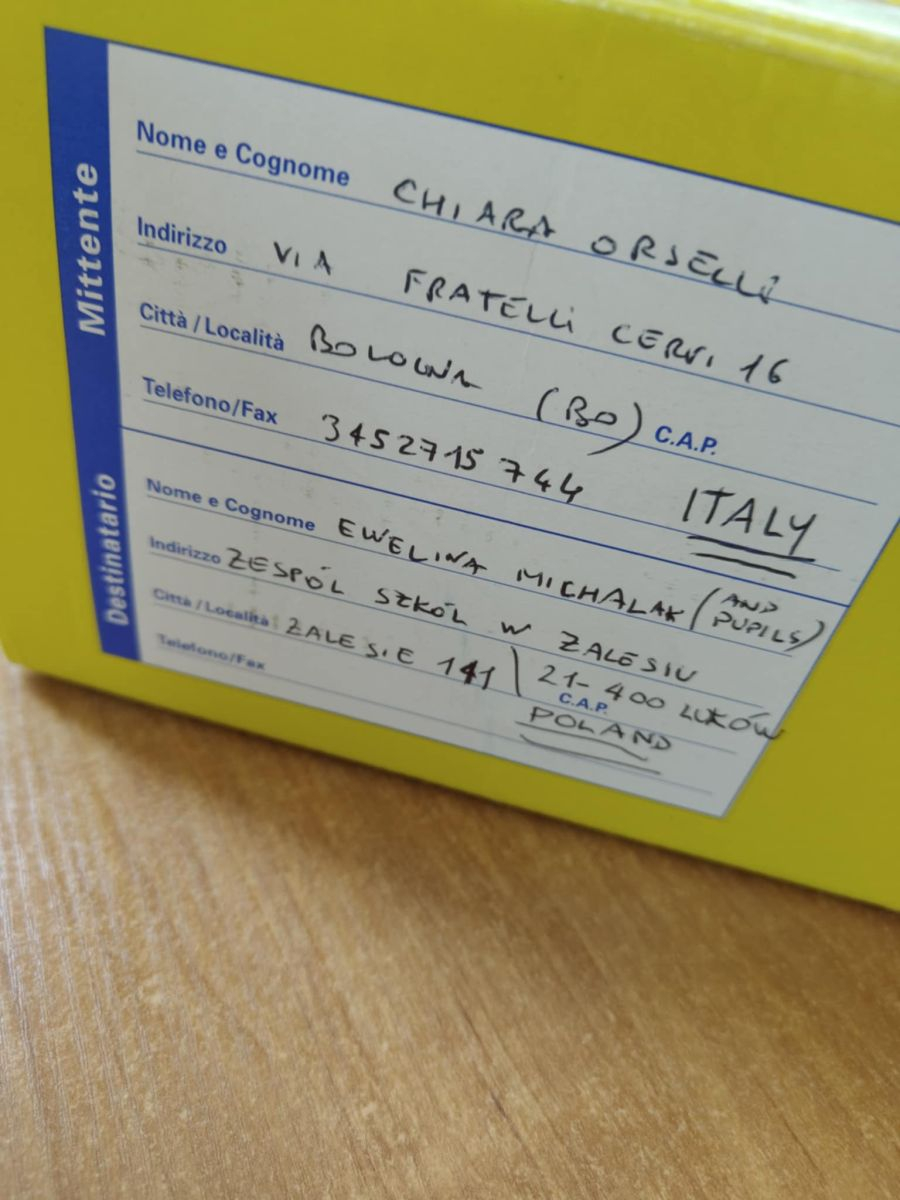 Mittente
Nome e Cognome CHIARA ORSELLi
Indirizzo VIA FRATELLi CERVi 16
Città / Località BOLOGNA (BO) C.A.P.
Telefono/Fax 3452715744 ITALY
Destinatario
Nome e Cognome EWELINA MICHALAK (AND PUPILS)
Indirizzo ZESPÓL SZKÓL W ZALESIU
Città / Località ZALESIE 141 \ 21-400 LUKÓW
C.A.P.
Telefono/Fax POLAND